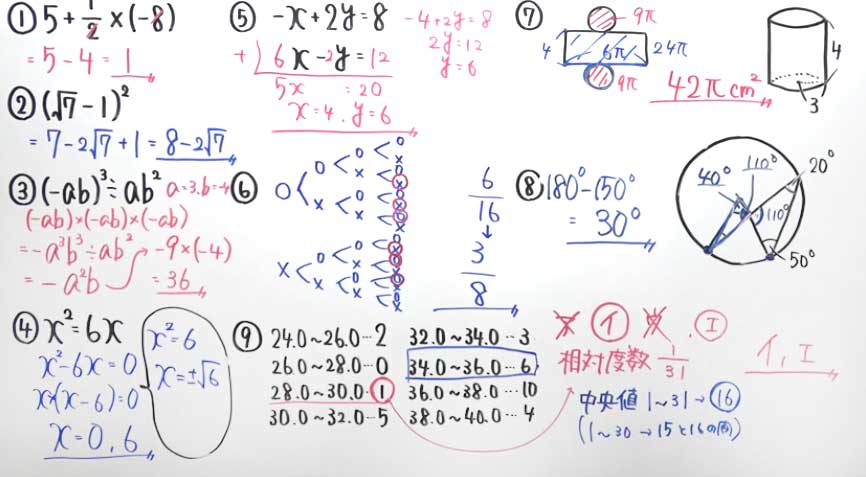 ① 5 + 1/2 × (-8)
= 5 - 4 = 1
② (√7 - 1)²
= 7 - 2√7 + 1 = 8 - 2√7
③ (-ab)³ ÷ ab² a=3. b=-4
(-ab)×(-ab)×(-ab)
= -a³b³ ÷ ab²
= -a²b
-9×(-4)
= 36
④ x² = 6x
x² - 6x = 0
x(x - 6) = 0
x = 0, 6
x² = 6
x = ±√6
⑤ -x + 2y = 8
+) 6x - 2y = 12
5x = 20
x = 4, y = 6
-4 + 2y = 8
2y = 12
y = 6
⑥
○ < ○ < ○ < ○
×
× < ○
×
× < ○ < ○
×
× < ○
×
× < ○ < ○ < ○
×
× < ○
×
× < ○ < ○
×
× < ○
×
6/16
↓
3/8
⑦
9π
4 6π 24π
9π
42π cm²
4
3
⑧ 180° - 150°
= 30°
40° 110° 20°
110°
50°
⑨ 24.0~26.0…2 32.0~34.0…3
26.0~28.0…0 34.0~36.0…6
28.0~30.0…1 36.0~38.0…10
30.0~32.0…5 38.0~40.0…4
ア イ ウ . エ
相対度数 1/31
中央値 1~31→16
(1~30→15と16の間)
イ, エ